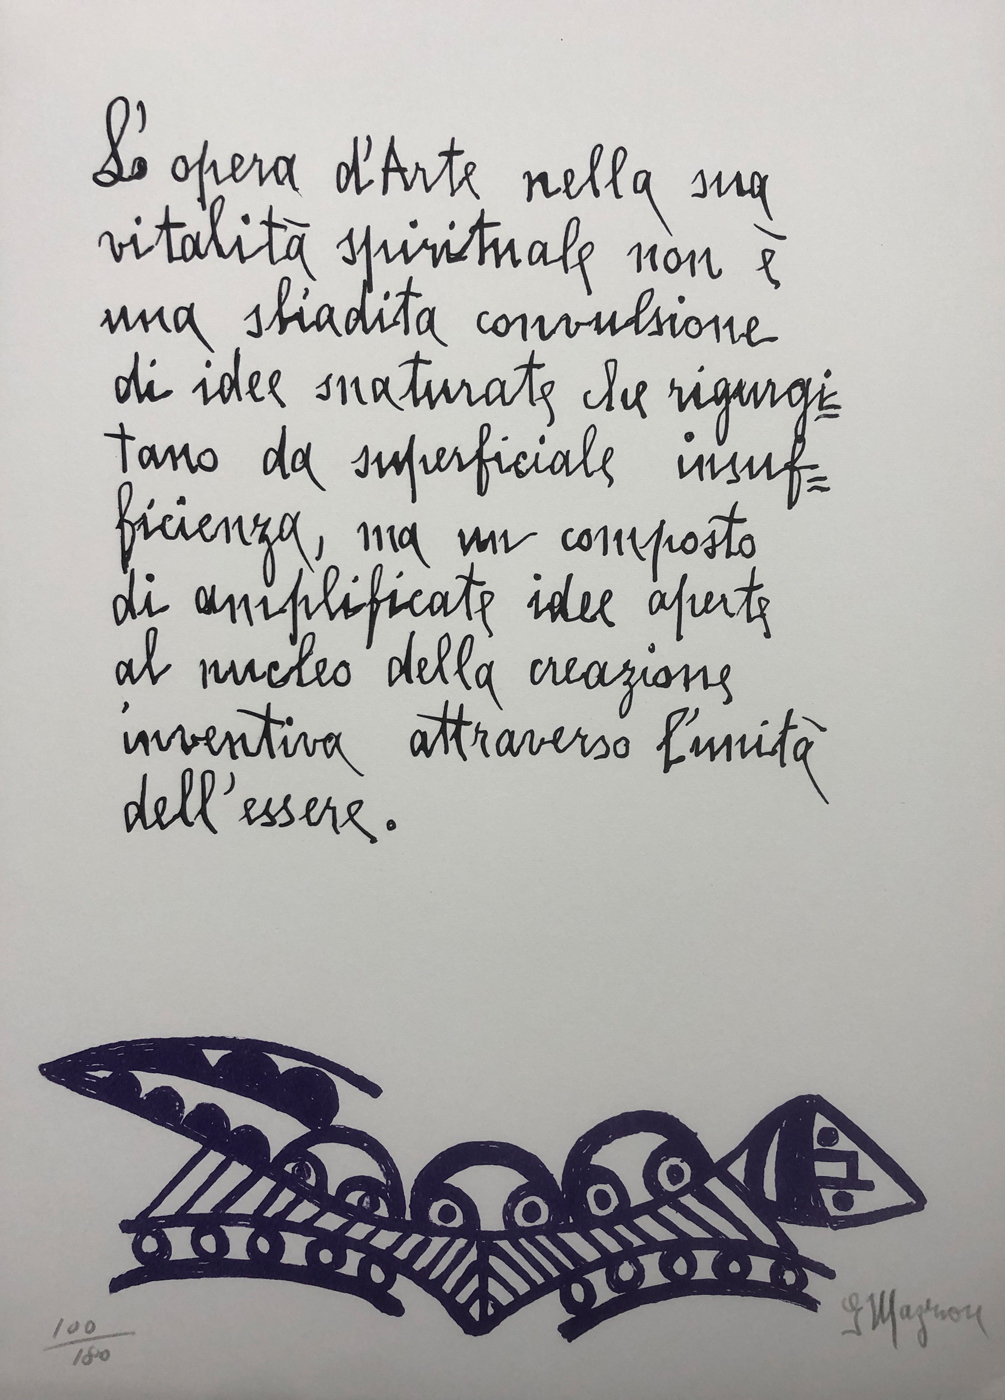 L'opera d'Arte nella sua
vitalità spirituale non è
una sbiadita convulsione
di idee snaturate che rigurgi=
tano da superficiale insuf=
ficienza, ma un composto
di amplificate idee aperte
al nucleo della creazione
inventiva attraverso l'unità
dell'essere.
100/180